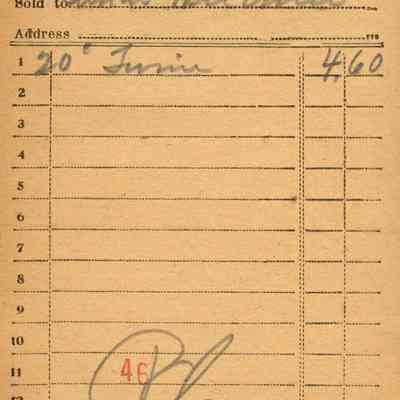 Sold to
Address
1 20 4.60
2
3
4
5
6
7
8
9
10
11 46
12